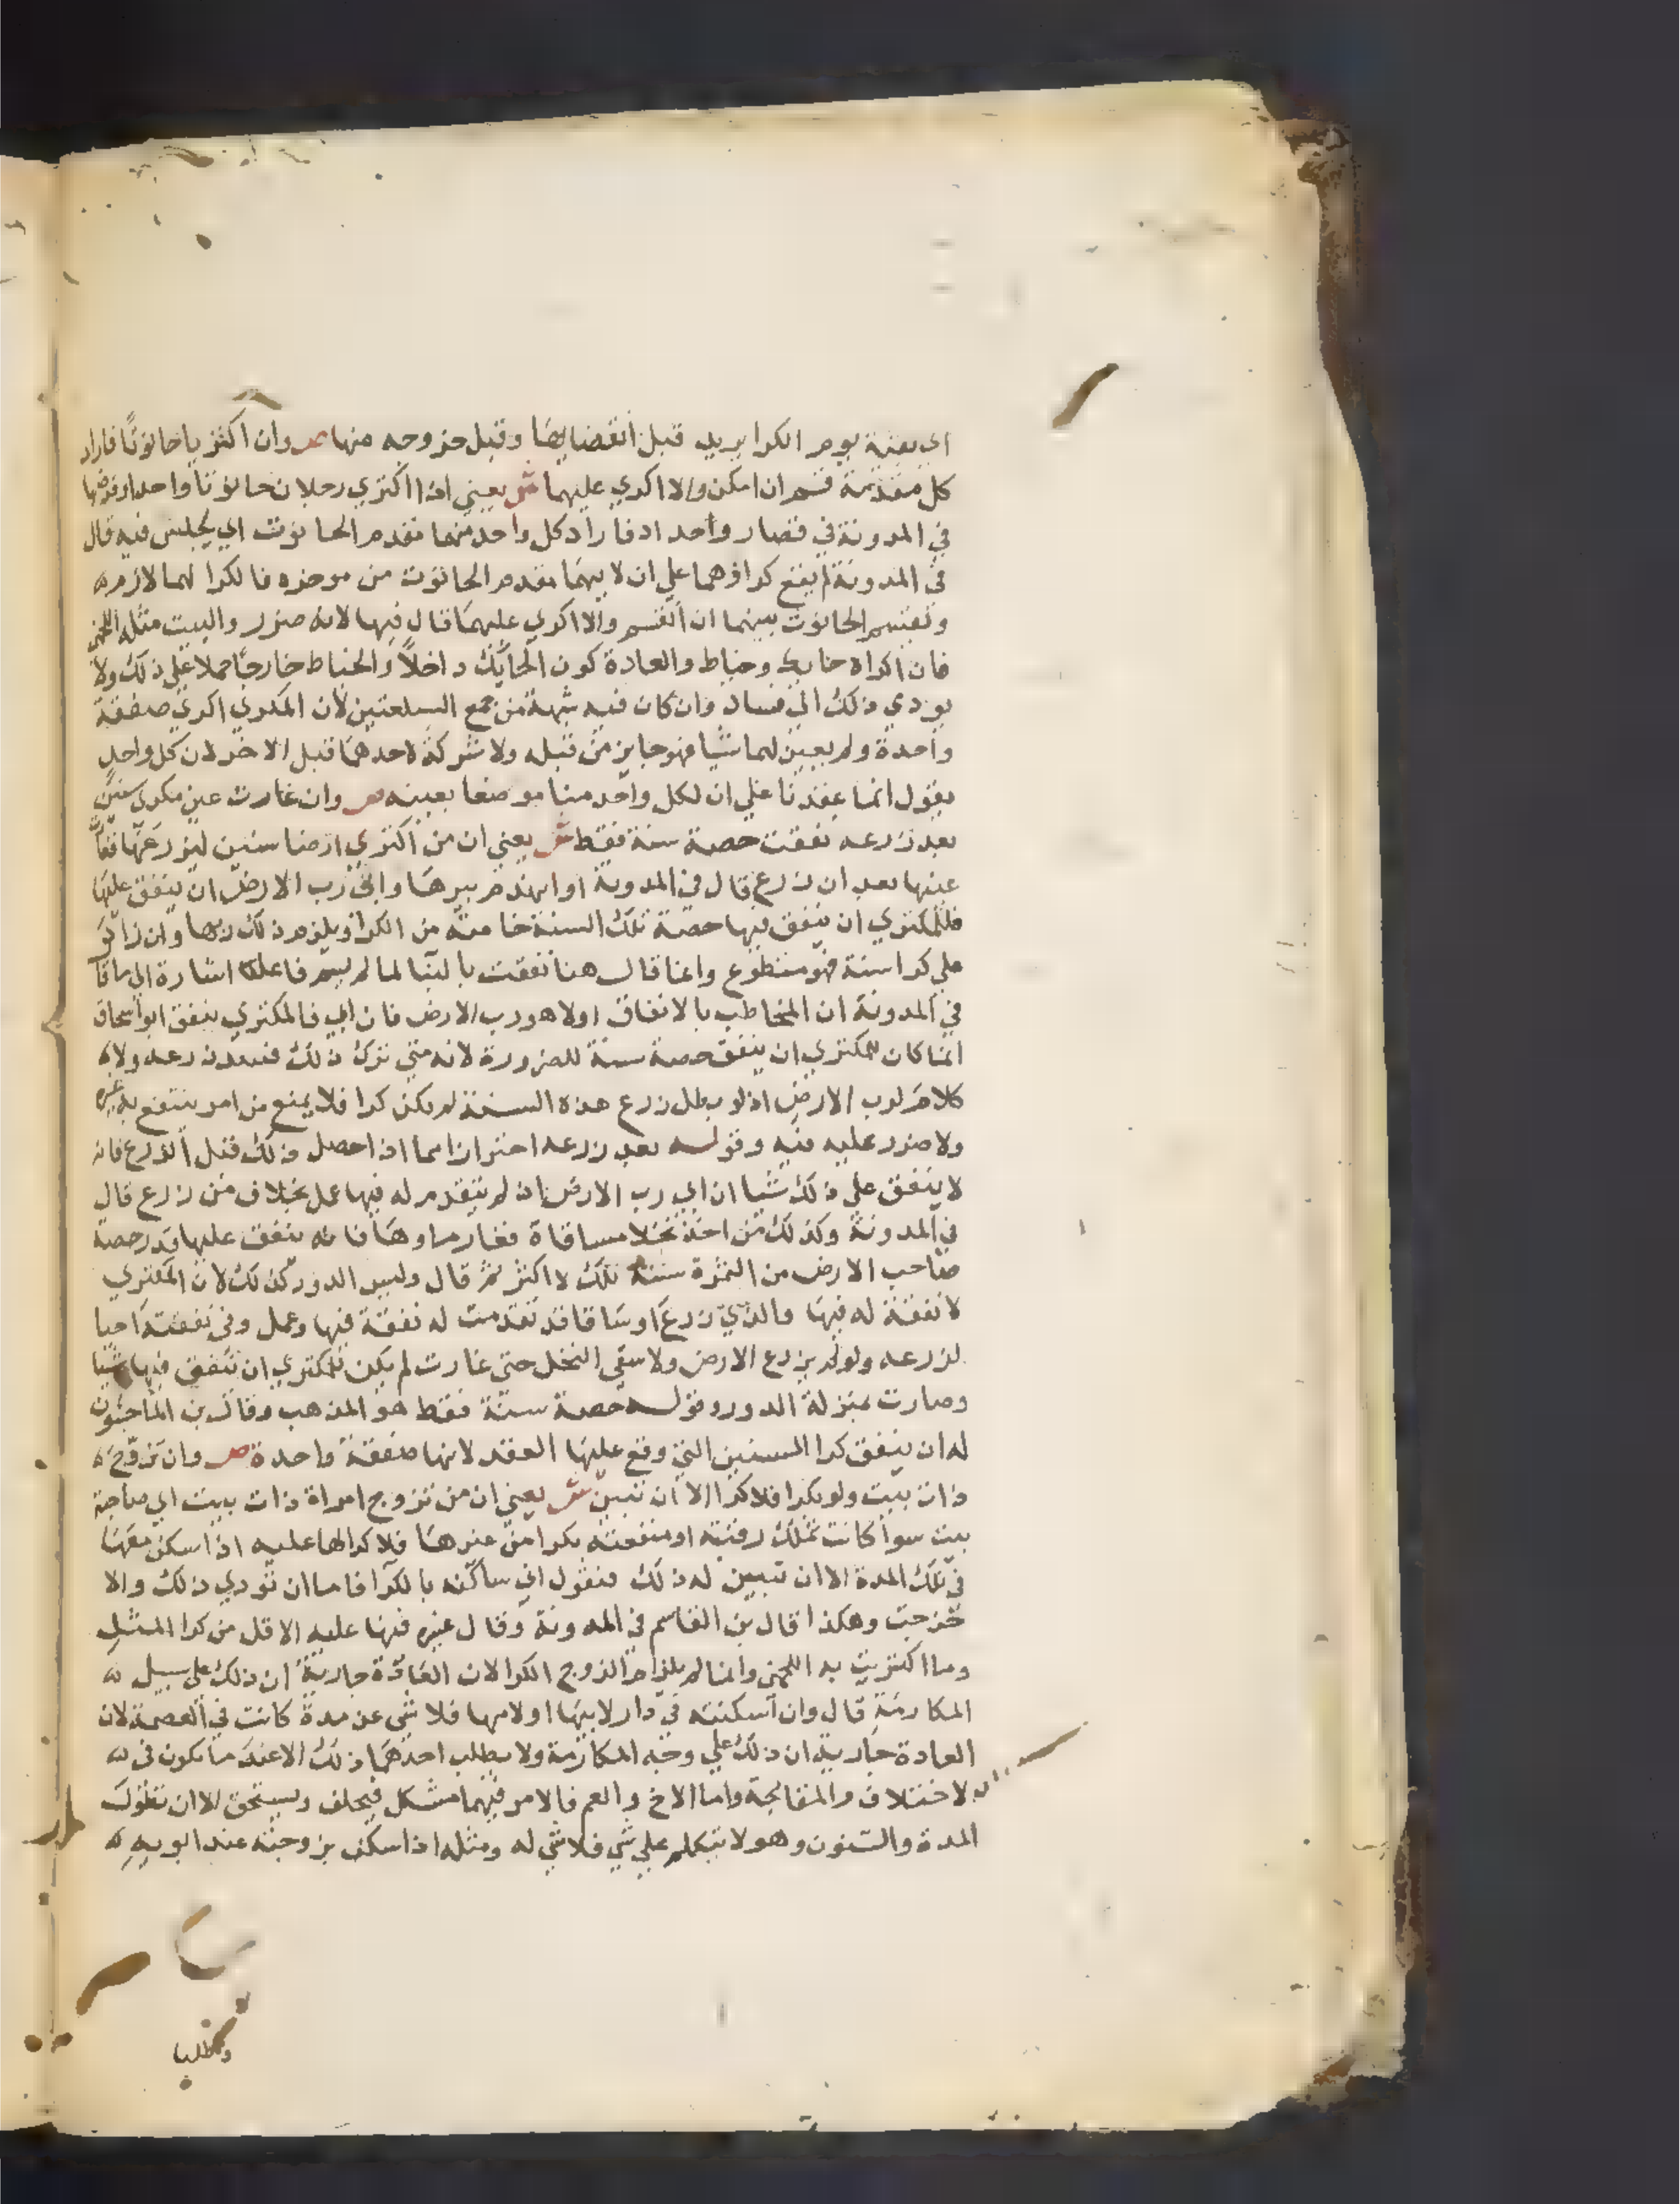 اي بقية يوم الكرا يريد قبل انقضايها وقبل خروجه منها ص وان اكتريا حانوتًا فاراد
كل مقدمه قسم ان امكن والا اكري عليهما ش يعني اذا اكتري رجلان حانوتا واحدا وفرضها
في المدونة في قصار وأحد اد فاراد كل واحد منهما مقدم الحانوت اي يجلس فيه قال
في المدونة لم يقع كراؤهما علي ان لا يهما مقدم الحانوت من موخره فالكرا لهما لازم
وتقسم الحانوت بينهما ان انقسم والا اكري عليهما قال فيها لانه ضرر والبيت مثله اللخمي
فان اكراه حايك وخياط والعادة كون الحايك داخلاً والخياط خارجًا حملا علي ذلك ولا
يودي ذلك الي فساد وان كان فيه شبهة من جمع السلعتين لان المكري اكري صفقة
واحدة ولم يعين لهما شيا فهو جايز من قبله ولا شركة لاحدهما قبل الاخر لان كل واحد
يقول انما عقدنا علي ان لكل واحد منا موضعا بعينه ص وان غارت عين مكري سنين
بعد زرعه نفقت حصة سنة فقط ش يعني ان من اكتري ارضا سنين ليزرعها فغارت
عينها بعد ان زرع قال في المدونة او انهدم بيرها وابي رب الارض ان ينفق عليها
فللمكتري ان ينفق فيها حصة تلك السنة خاصة من الكرا ويلزم ذلك ربها وان زاد
علي كرا سنة فهو متطوع وانما قال هنا نفقت بالبنا لما لم يسم فاعله اشارة الي ما قا
في المدونة ان المخاطب بالانفاق اولا هو رب الارض فان ابي فالمكتري ينفق ابو اسحاق
انما كان للمكتري ان ينفق حصة سنة للضرورة لانه متي ترك ذلك فسد زرعه ولا
كلام لرب الارض اذ لو بطل زرع هذه السنة لم يكن كرا فلا يمنع من امر ينتفع به غيره
ولا ضرر عليه فيه وقوله بعد زرعه احترازا مما اذا حصل ذلك قبل الزرع فانه
لا ينفق علي ذلك شيا ان ابي رب الارض اذ لم يتقدم له فيها عمل بخلاف من زرع قال
في المدونة وكذلك من اخذ نخلا مساقاة فغار ماوها فانه ينفق عليها قدر حصة
صاحب الارض من الثمرة سنته تلك لا اكثر ثم قال وليس الدور كذلك لان المكتري
لا نفقة له فيها والذي زرع او ساقا قد تقدمت له نفقة فيها وعمل وفي نفقته احيا
لزرعه ولو لم يزرع الارض ولا سقي النخل حتي غارت لم يكن للمكتري ان ينفق فيها شيا
وصارت بمنزلة الدور وقوله حصة سنة فقط هو المذهب وقال بن الماجشون
له ان ينفق كرا السنين التي وقع عليها العقد لانها صفقة واحدة ص وان تزوج
ذات بيت ولو بكرا فلا كرا الا ان تبين ش يعني ان من تزوج امراة ذات بيت اي صاحبة
بيت سوا كانت تملك رقبته او منفعته بكرا من غيرها فلا كرا لها عليه اذا سكن معها
في تلك المدة الا ان تبين له ذلك فتقول اني ساكنه بالكرا فاما ان تودي ذلك والا
خرجت وهكذا قال بن القاسم في المدونة وقال غيره فيها عليه الاقل من كرا المثل
وما اكتريت به اللخمي وانما لم يلزم الزوج الكرا لان العادة جارية ان ذلك علي سبيل
المكارمة قال وان اسكنته في دار لابيها او لامها فلا شي عن مدة كانت في العصمة لان
العادة جارية ان ذلك علي وجه المكارمة ولا يطلب احدهما ذلك الا عند ما يكون في
الاختلاف والمقابحة واما الاخ والعم فالامر فيهما مشكل فيحلف ويستحق الا ان تطول
المدة والسنون وهو لا يتكلم علي شي فلا شي له ومثله اذا سكن بزوجته عند ابويه